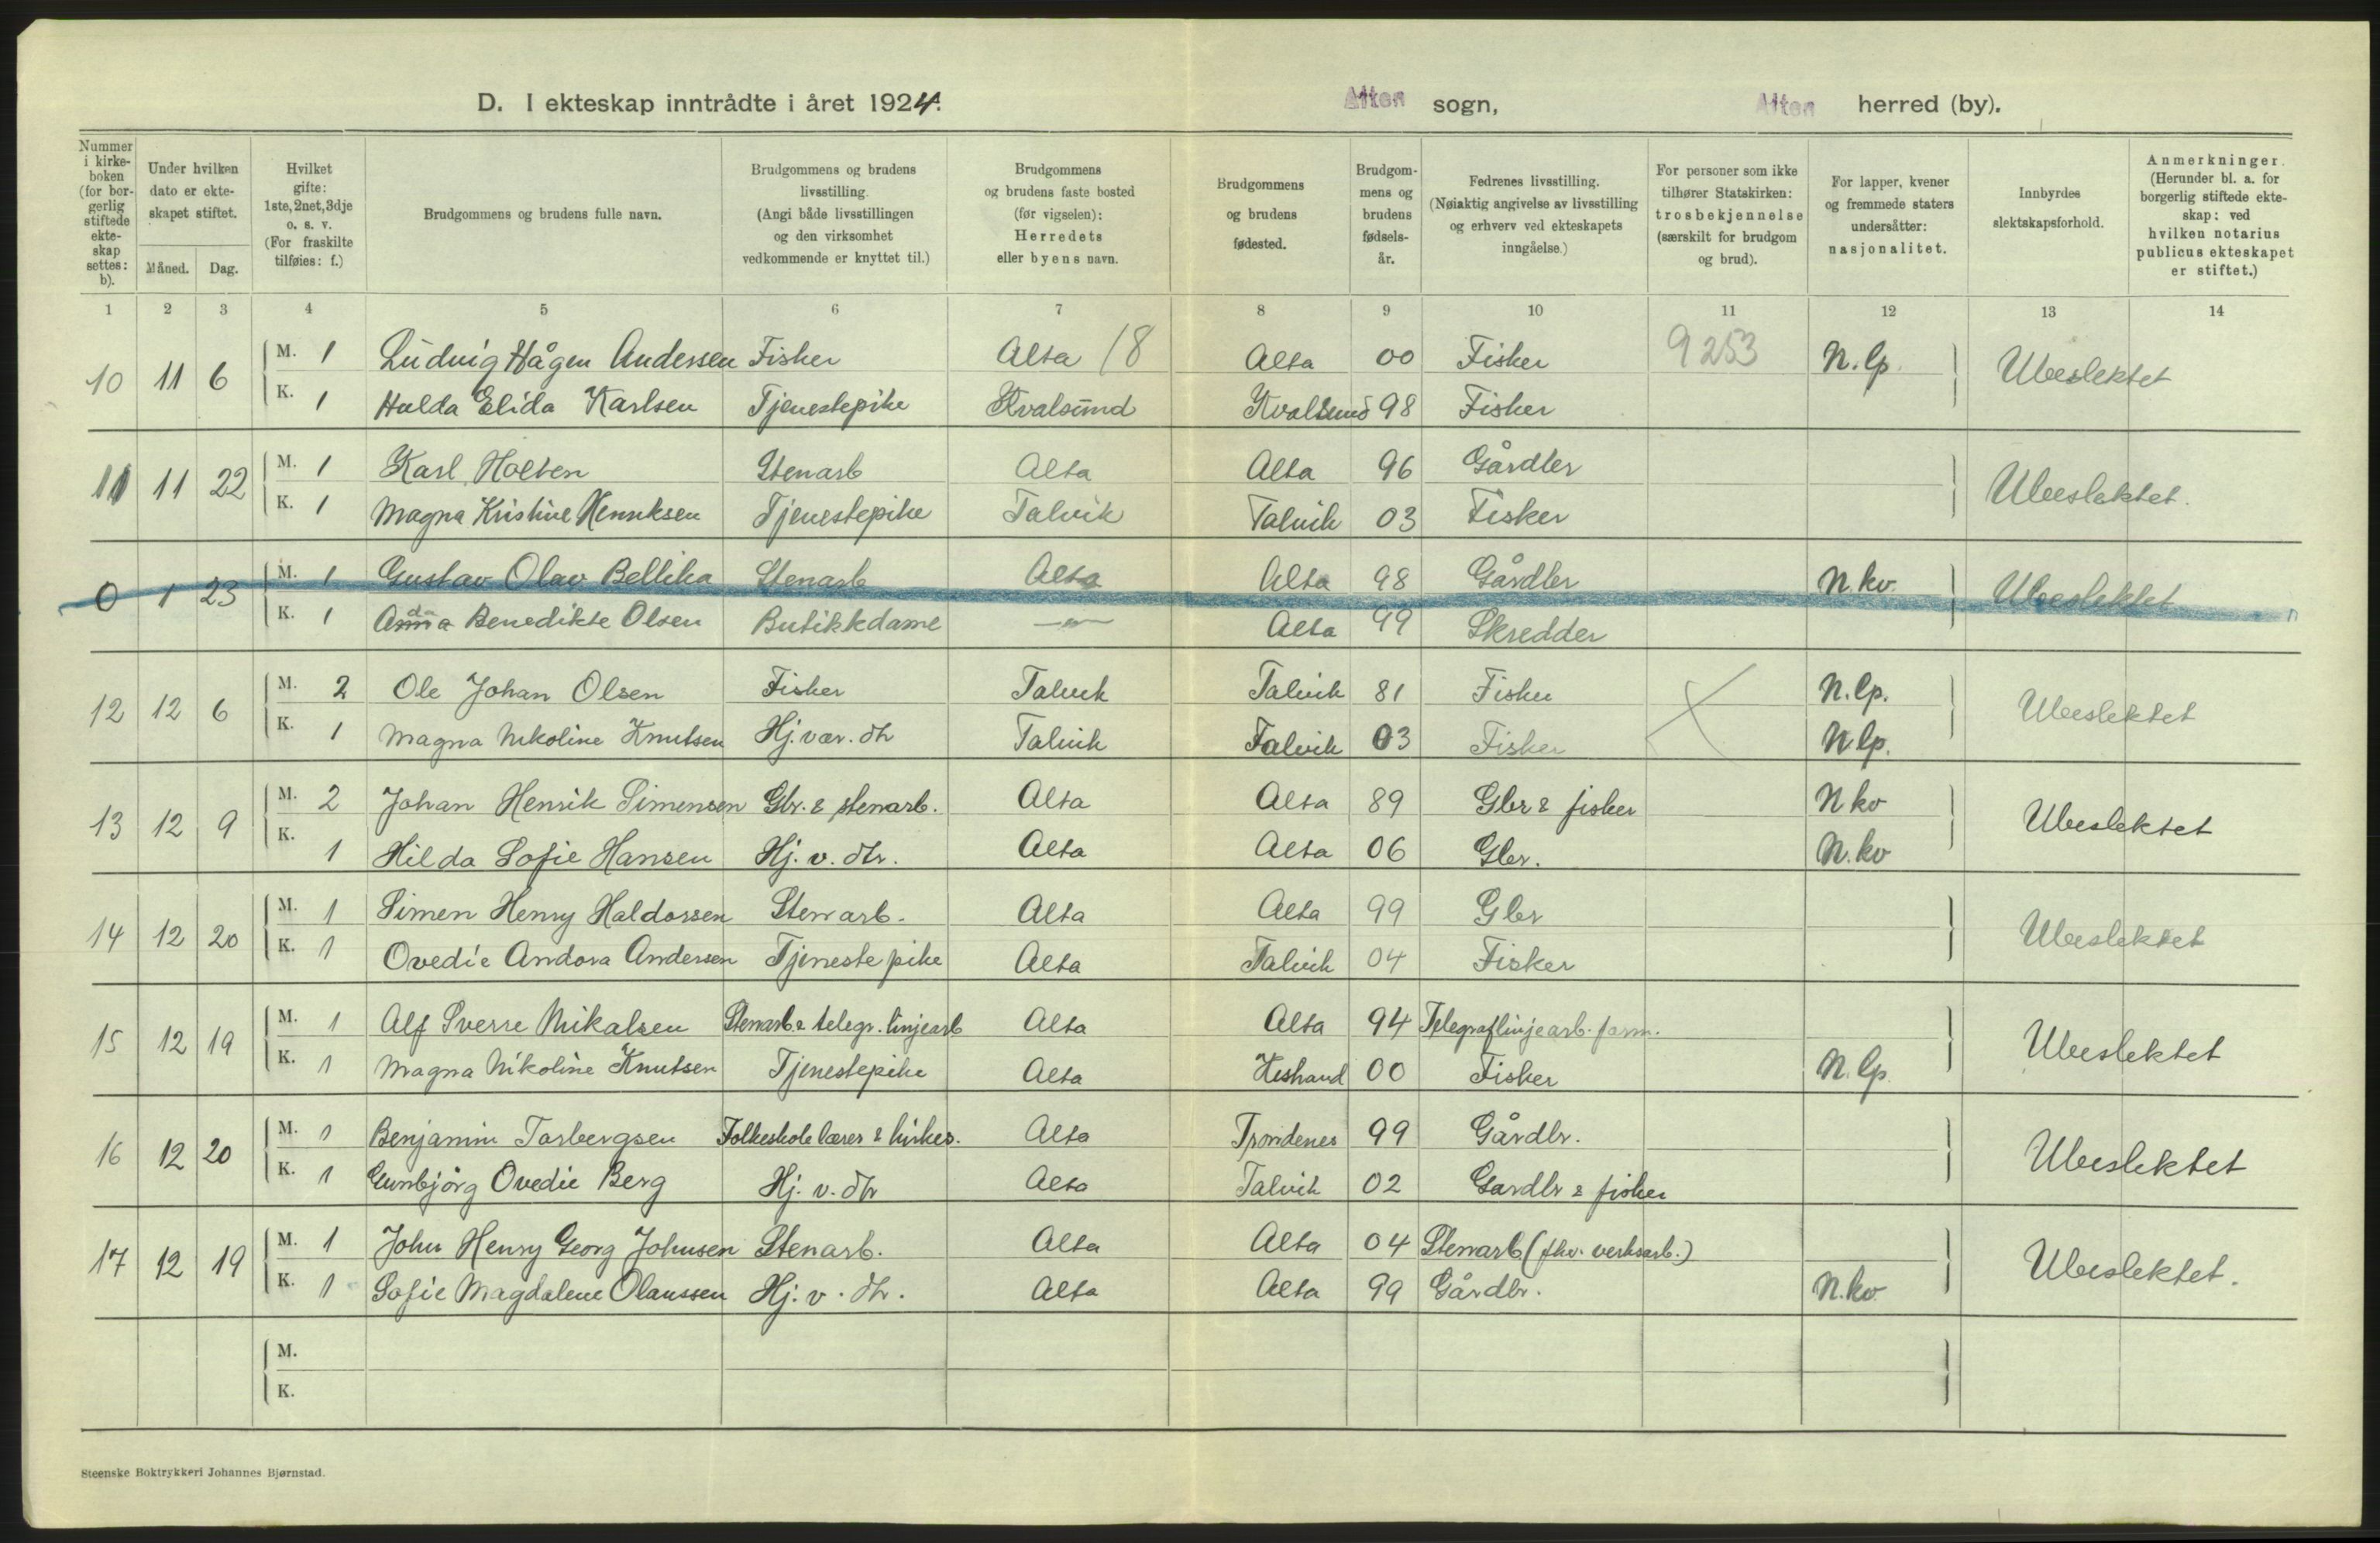 D. I ekteskap inntrådte i året 1924. Alten sogn, Alten herred (by).
Nummer i kirkeboken (for borgerlig stiftede ekteskap settes: b). Under hvilken dato er ekteskapet stiftet. Måned. Dag. Hvilket gifte: 1ste, 2net, 3dje o. s. v. (For fraskilte tilføies: f.) Brudgommens og brudens fulle navn. Brudgommens og brudens livsstilling. (Angi både livsstillingen og den virksomhet vedkommende er knyttet til.) Brudgommens og brudens faste bosted (før vigselen): Herredets eller byens navn. Brudgommens og brudens fødested. Brudgommens og brudens fødselsår. Fedrenes livsstilling. (Nøiaktig angivelse av livsstilling og erhverv ved ekteskapets inngåelse.) For personer som ikke tilhører Statskirken: trosbekjennelse (særskilt for brudgom og brud). For lapper, kvener og fremmede staters undersåtter: nasjonalitet. Innbyrdes slektskapsforhold. Anmerkninger. (Herunder bl. a. for borgerlig stiftede ekteskap: ved hvilken notarius publicus ekteskapet er stiftet.)
1 2 3 4 5 6 7 8 9 10 11 12 13 14
10 11 6 M. 1 Ludvig Hågen Anderssen Fisker Alta 18 Alta 00 Fisker 9253 N. lp. Ubeslektet
K. 1 Hulda Elida Karlsen Tjenestepike Kvalsund Kvalsund 98 Fisker
11 11 22 M. 1 Karl Holten Stenarb Alta Alta 96 Gårdbr Ubeslektet.
K. 1 Magna Kristine Henriksen Tjenestepike Talvik Talvik 03 Fisker
0 1 23 M. 1 Gustav Olav Bellika Stenarb Alta Alta 98 Gårdbr N. kv. Ubeslektet
K. 1 Anna Benedikte Olsen Butikkdame —"— Alta 99 Skredder
12 12 6 M. 2 Ole Johan Olsen Fisker Talvik Talvik 81 Fisker N. lp. Ubeslektet
K. 1 Magna Nikoline Knutsen Hj. vær. dtr Talvik Talvik 03 Fisker N lp.
13 12 9 M. 2 Johan Henrik Simensen Gbr. & stenarb. Alta Alta 89 Gbr & fisker N kv Ubeslektet
K. 1 Hilda Sofie Hansen Hj. v. dtr. Alta Alta 06 Gbr. N. kv
14 12 20 M. 1 Simen Henry Haldorsen Stenarb. Alta Alta 99 Gbr Ubeslektet
K. 1 Ovedie Andora Andersen Tjenestepike Alta Talvik 04 Fisker
15 12 19 M. 1 Alf Sverre Mikalsen Stenarb & telegr. linjearb Alta Alta 94 Telegraflinjearb. form. Ubeslektet
K. 1 Magna Nikoline Knutsen Tjenestepike Alta 00 Fisker N. lp.
16 12 20 M. 1 Benjamin Torbergsen Folkeskolelærer & kirkes. Alta Trondenes 99 Gårdbr. Ubeslektet
K. 1 Gunbjörg Ovedie Berg Hj. v. dtr Alta Talvik 02 Gardbr & fisker
17 12 19 M. 1 John Henry Georg Johnsen Stenarb. Alta Alta 04 Stenarb (fhv. verksarb.) Ubeslektet.
K. 1 Sofie Magdalene Olaussen Hj. v. dtr. Alta Alta 99 Gårdbr. N. kv.
M.
K.
Steenske Boktrykkeri Johannes Bjørnstad.